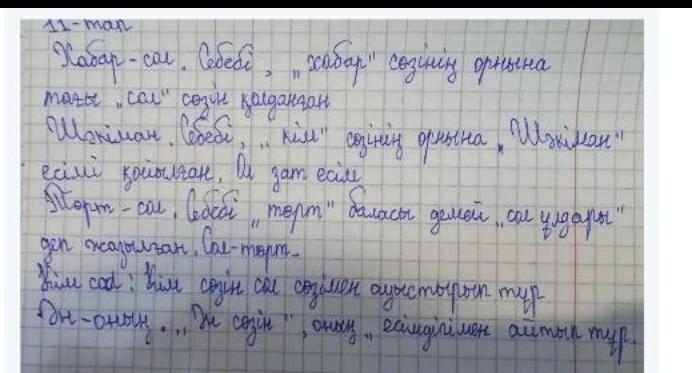 11-тап
Хабар - сол. Себебі, „хабар" сөзінің орнына
тағы „сол" сөзін қолданған
Шәкіман. Себебі, „кім" сөзінің орнына „Шәкіман"
есімі қойылған. Ол зат есім
Төрт - сол. Себебі „төрт" баласы демей „сол ұлдары"
деп жазылған. Сол-төрт.
Кім сол: Кім сөзін сол сөзімен ауыстырып тұр
Ән-оның. „Ән сөзін", оның „есімдігімен айтып тұр.